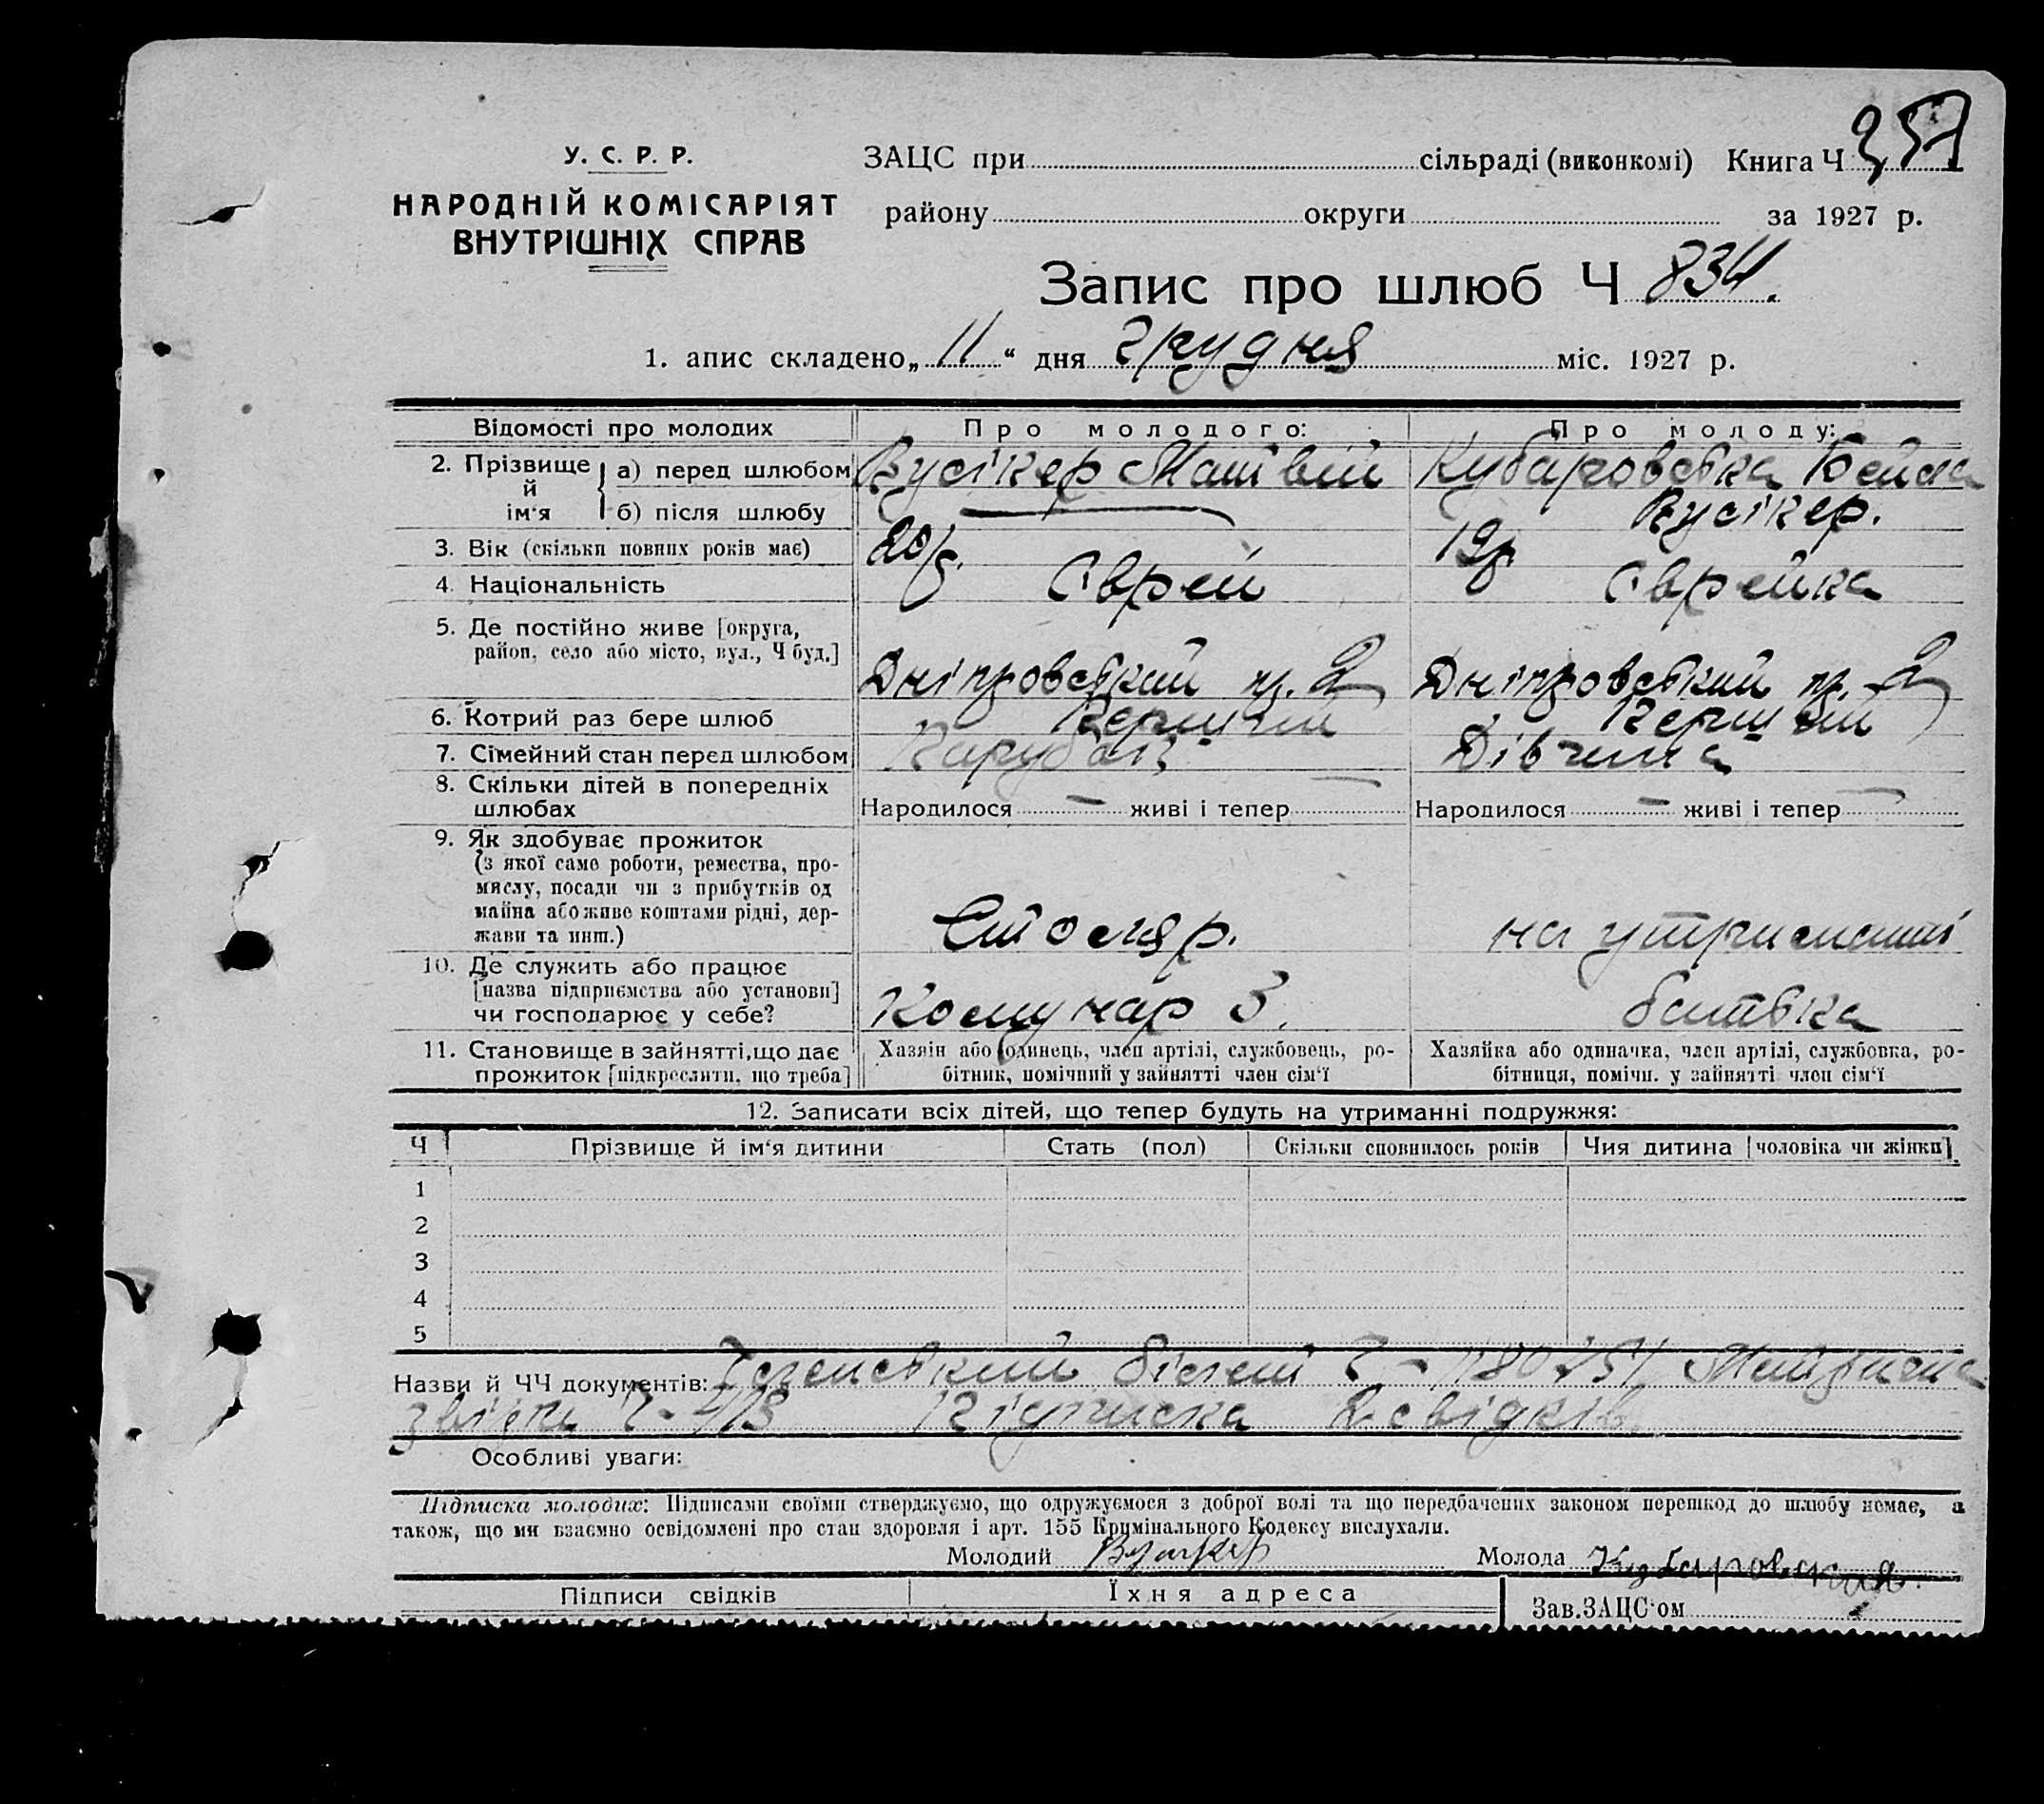 У. С. Р. Р.
НАРОДНІЙ КОМІСАРІЯТ
ВНУТРІШНІХ СПРАВ
ЗАЦС при сільраді (виконкомі) Книга Ч 357
району округи за 1927 р.
Запис про шлюб Ч 834.
1. апис складено „ 11 “ дня грудня міс. 1927 р.
Відомості про молодих Про молодого: Про молоду:
2. Прізвище й ім‘я
а) перед шлюбом Вусікер Матвій Кубаровська Бейла
б) після шлюбу Вусікер.
3. Вік (скільки повних років має) 20 р. 19 р.
4. Національність Єврей Єврейка
5. Де постійно живе [округа,
район, село або місто, вул., Ч буд.] Дніпровський пр. 2 Дніпровський пр. 2
6. Котрий раз бере шлюб Перший Перший
7. Сімейний стан перед шлюбом Парубок Дівчина
8. Скільки дітей в попередніх
шлюбах Народилося — живі і тепер — Народилося — живі і тепер —
9. Як здобуває прожиток
(з якої саме роботи, ремества, про-
мислу, посади чи з прибутків од
майна або живе коштами рідні, дер-
жави та инш.) Столяр. на утриманні
10. Де служить або працює
[назва підприємства або установи]
чи господарює у себе? Комунар 3. батька
11. Становище в зайнятті, що дає
прожиток [підкреслити, що треба]
Хазяін або одинець, член артілі, службовець, ро-
бітник, помічний у зайнятті член сім‘ї
Хазяйка або одиначка, член артілі, службовка, ро-
бітниця, помічн. у зайнятті член сім‘ї
12. Записати всіх дітей, що тепер будуть на утриманні подружжя:
Ч Прізвище й ім‘я дитини Стать (пол) Скільки сповнилось років Чия дитина [чоловіка чи жінки]
1
2
3
4
5
Назви й ЧЧ документів: Членський білет Ч - Метрична
Ч - Підписка свідків
Особливі уваги:
Підписка молодих: Підписами своїми стверджуємо, що одружуємося з доброї волі та що передбачених законом перешкод до шлюбу немає, а
також, що ми взаємно освідомлені про стан здоровля і арт. 155 Кримінального Кодексу вислухали.
Молодий Вусикер Молода Кубаровская
Підписи свідків Їхня адреса Зав. ЗАЦС‘ом